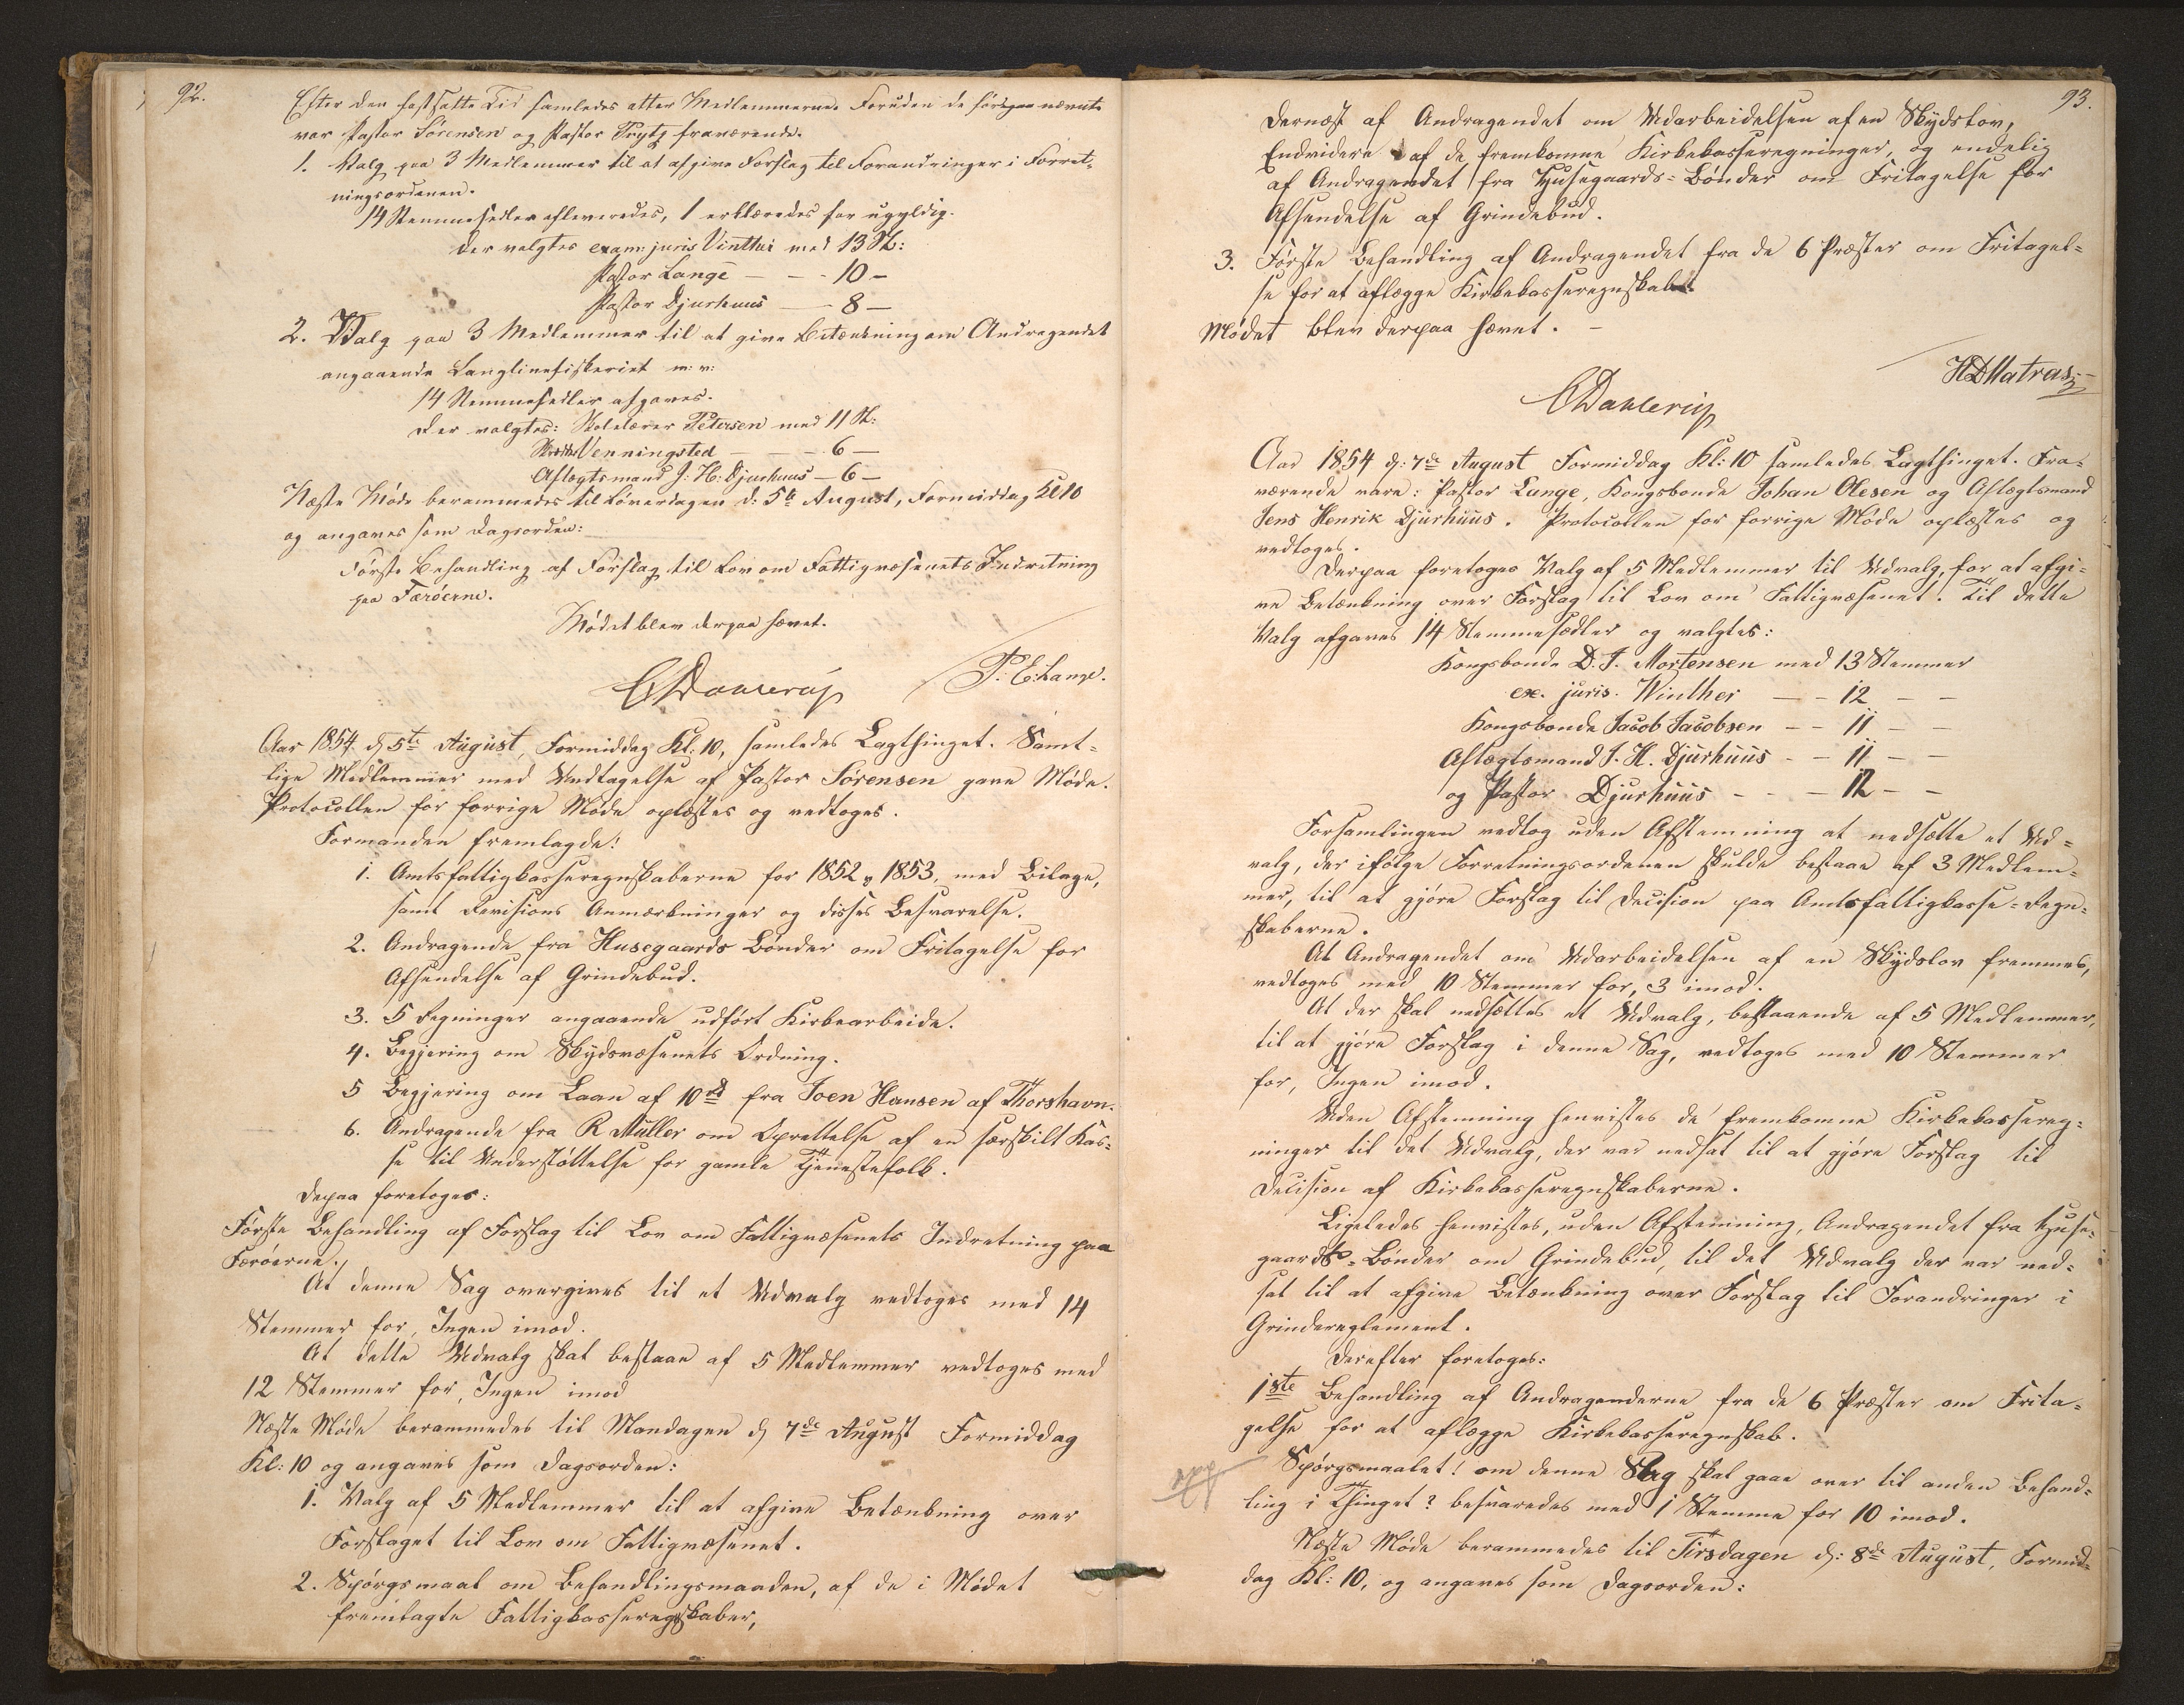 92.
Efter den fastsatte Tid samledes atter Medlemmerne. Foruden de förhen nævnte
var Pastor Sörensen og Pastor Prytz fraværende.
1. Valg paa 3 Medlemmer til at afgive Forslag til Forandringer i Forret-
ningsordenen.
14 Stemmesedler afleveredes, 1 erklæredes for ugyldig.
Der valgtes exam: juris Vinther med 13 St:
Pastor Lange — - 10 -
Pastor Djurhuus — 8 —
2. Valg paa 3 Medlemmer til at give Betænkning om Andragendet
angaaende Langlinefiskeriet m: v:
14 Stemmesedler afgaves.
Der valgtes: Skolelærer Petersen med 11 St:
Venningsted — - 6 —
Aflægtsmand J: H: Djurhuus — 6 —
Næste Möde berammedes til Löverdagen d: 5te August, Formiddag Kl 10
og angaves som Dagsorden:
Förste Behandling af Forslag til Lov om Fattigvæsenets Indretning
paa Færöerne.
Mödet blev derpaa hævet.
CDahlerup P: E: Lange.
Aar 1854 d 5te August, Formiddag Kl: 10, samledes Lagthinget. Samt-
lige Medlemmer med Undtagelse af Pastor Sörensen gave Möde.
Protocollen for forrige Möde oplæstes og vedtoges.
Formanden fremlagde:
1. Amtsfattigkasseregnskaberne for 1852 & 1853, med Bilage,
samt Revisions Anmærkninger og disses Besvarelse.
2. Andragende fra Husegaards Bönder om Fritagelse for
Afsendelse af Grindebud.
3. 5 Regninger angaaende udfört Kirkearbeide.
4. Begjering om Skydsvæsenets Ordning.
5 Begjering om Laan af 10 rd fra Joen Hansen af Thorshavn.
6. Andragende fra R Müller om Oprettelse af en særskilt Kas-
se til Understöttelse for gamle Tjenestefolk.
Depaa foretoges:
Förste Behandling af Forslag til Lov om Fattigvæsenets Indretning paa
Færöerne.
At denne Sag overgives til et Udvalg vedtoges med 14
Stemmer for, Ingen imod.
At dette Udvalg skal bestaae af 5 Medlemmer vedtoges med
12 Stemmer for, Ingen imod
Næste Möde berammedes til Mandagen d 7de August Formiddag
Kl: 10 og angaves som Dagsorden:
1. Valg af 5 Medlemmer til at afgive Betænkning over
Forslaget til Lov om Fattigvæsenet.
2. Spörgsmaal om Behandlingsmaaden, af de i Mödet
fremlagte Fattigkasseregnskaber,
93.
dernæst af Andragendet om Udarbeidelsen af en Skydslov,
Endvidere af de fremkomne Kirkekasseregninger, og endelig
af Andragendet fra Husegaards-Bönder om Fritagelse for
Afsendelse af Grindebud.
3. Förste Behandling af Andragendet fra de 6 Præster om Fritagel-
se for at aflægge Kirkekasseregnskabet.
Mödet blev derpaa hævet. -
HDMatras
CDahlerup
Aar 1854 d: 7de August Formiddag Kl: 10 samledes Lagthinget. Fra-
værende vare: Pastor Lange, Kongsbonde Johan Olesen og Aflægtsmand
Jens Henrik Djurhuus. Protocollen for forrige Möde oplæstes og
vedtoges.
Derpaa foretoges Valg af 5 Medlemmer til Udvalg, for at afgi-
ve Betænkning over Forslag til Lov om Fattigvæsenet. Til dette
Valg afgaves 14 Stemmesedler og valgtes:
Kongsbonde D. J. Mortensen med 13 Stemmer
ex. juris. Winther — — 12 — —
Kongsbonde Jacob Jacobsen — — 11 — —
Aflægtsmand J. H. Djurhuus - — 11 — —
og Pastor Djurhuus - - — 12 — —
Forsamlingen vedtog uden Afstemning at nedsætte et Ud-
valg, der ifölge Forretningsordenen skulde bestaae af 3 Medlem-
mer, til at gjöre Forslag til Decision paa Amtsfattigkasse-Regn-
skaberne.
At Andragendet om Udarbeidelsen af en Skydslov fremmes,
vedtoges med 10 Stemmer for, 3 imod.
At der skal nedsættes et Udvalg, bestaaende af 5 Medlemmer,
til at gjöre Forslag i denne Sag, vedtoges med 10 Stemmer
for, Ingen imod.
Uden Afstemning henvistes de fremkomne Kirkekassereg-
ninger til det Udvalg, der var nedsat til at gjöre Forslag til
Decision af Kirkekasseregnskaberne.
Ligeledes henvistes, uden Afstemning, Andragendet fra Huse-
gaards-Bönder om Grindebud, til det Udvalg der var ned-
sat til at afgive Betænkning over Forslag til Forandringer i
Grindereglement.
Derefter foretoges:
1ste Behandling af Andragenderne fra de 6 Præster om Frita-
gelse for at aflægge Kirkekasseregnskab.
Spörgsmaalet: om denne Sag skal gaae over til anden Behand-
ling i Thinget? besvaredes med 1 Stemme for 10 imod.
Næste Möde berammedes til Tirsdagen d: 8de August, Formid-
dag Kl: 10, og angaves som Dagsorden: